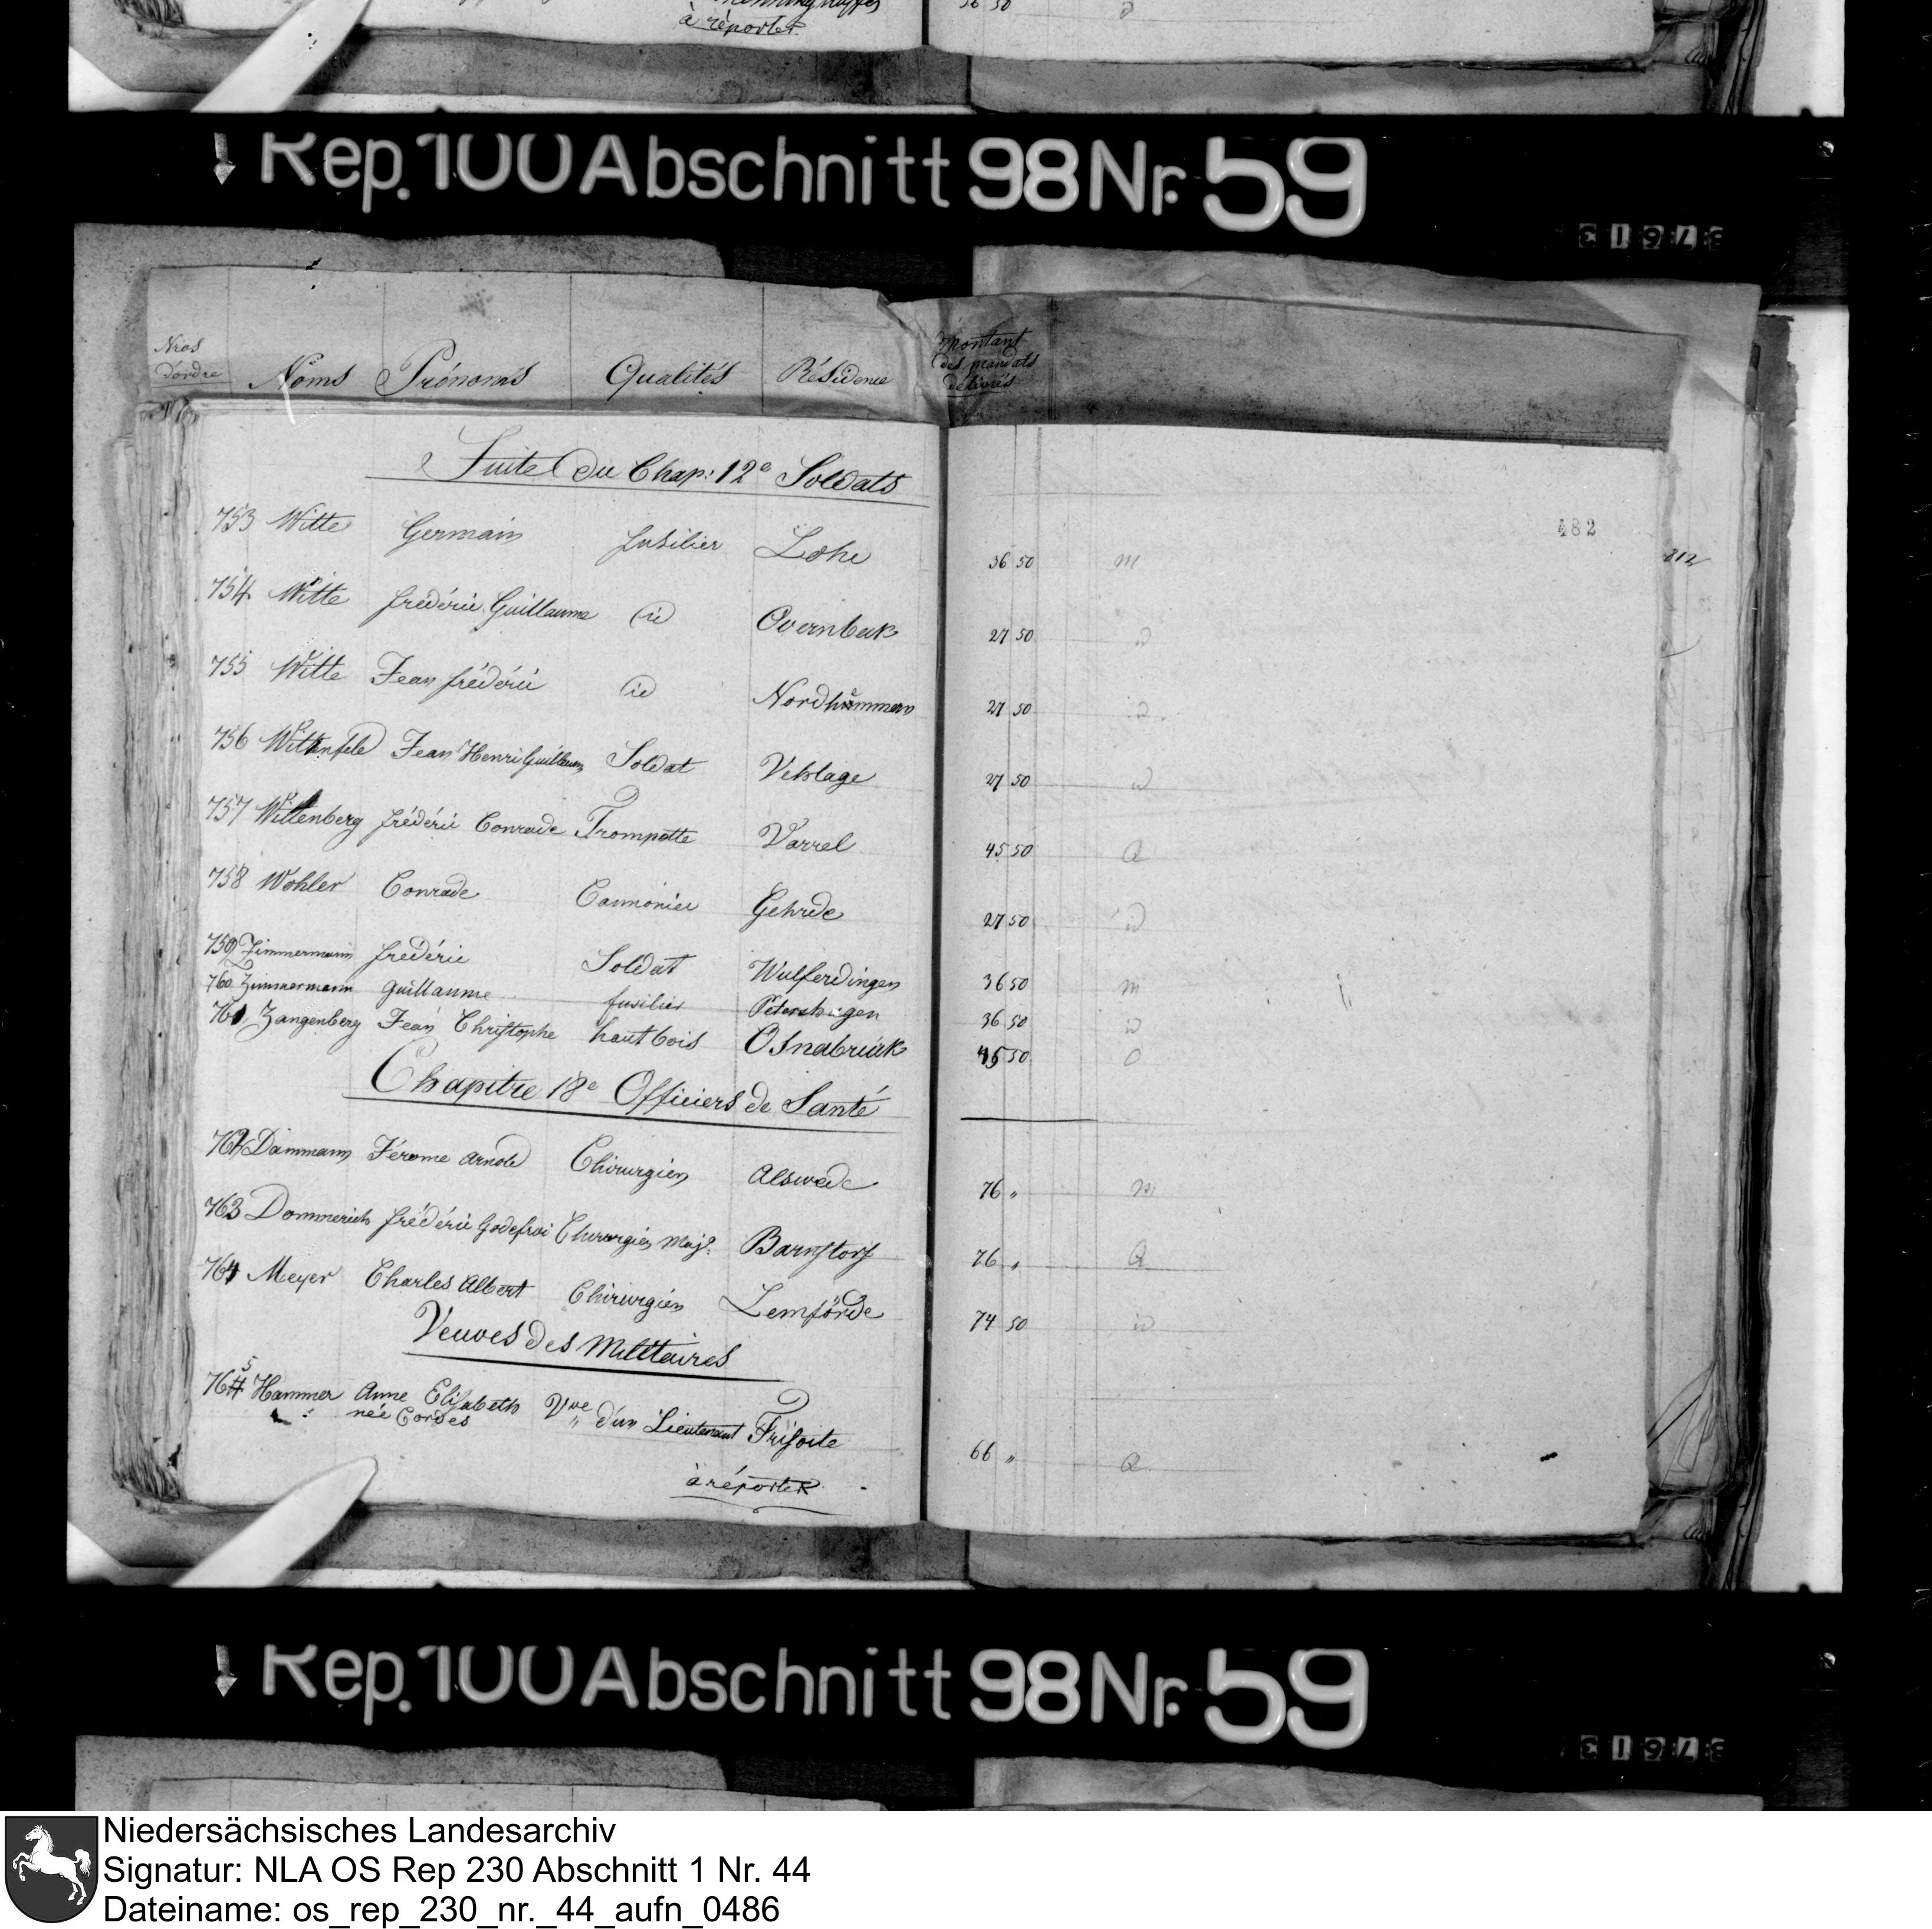 à réporter
36 50
Rep. 100 Abschnitt 98 Nr. 59
Nros d'ordre Noms Prénoms Qualités Résidence Montant des mandats délivrés
Suite du Chap: 12e Soldats
482
812
753 Witte Germain fusilier Lohe 36 50 m
754 Witte frédéric Guillaume id Ovenbeck 27 50 d
755 Witte Jean frédéric id Nordhemmern 27 50 d
756 Jean Henri Guillaume Soldat Vehlage 27 50
757 Wittenberg frédéric Conrade Trompette Varrel 45 50 Q
758 Wohler Conrade Cannonier Gehrde 27 50
759 Zimmermann frédéric Soldat Wulferdingen 36 50 m
760 Zimmermann Guillaume fusilier Petershagen 36 50
761 Zangenberg Jean Christophe hautbois Osnabruck 45 50 O
Chapitre 18e Officiers de Santé
762 Dammann Jérome Arnold Chirurgien Alswede 76 " m
763 Dommerich frédéric Godefroi Chirurgien Maj. Barnstorf 76 " Q
764 Meyer Charles Albert Chirurgien Lemförde 74 50
Veuves des Militaires
765 Hammer Anne Elisabeth Vve d'un Lieutenant Frisoite 66 " Q
née Cordes
à réporter
Rep. 100 Abschnitt 98 Nr. 59
Niedersächsisches Landesarchiv
Signatur: NLA OS Rep 230 Abschnitt 1 Nr. 44
Dateiname: os_rep_230_nr._44_aufn_0486